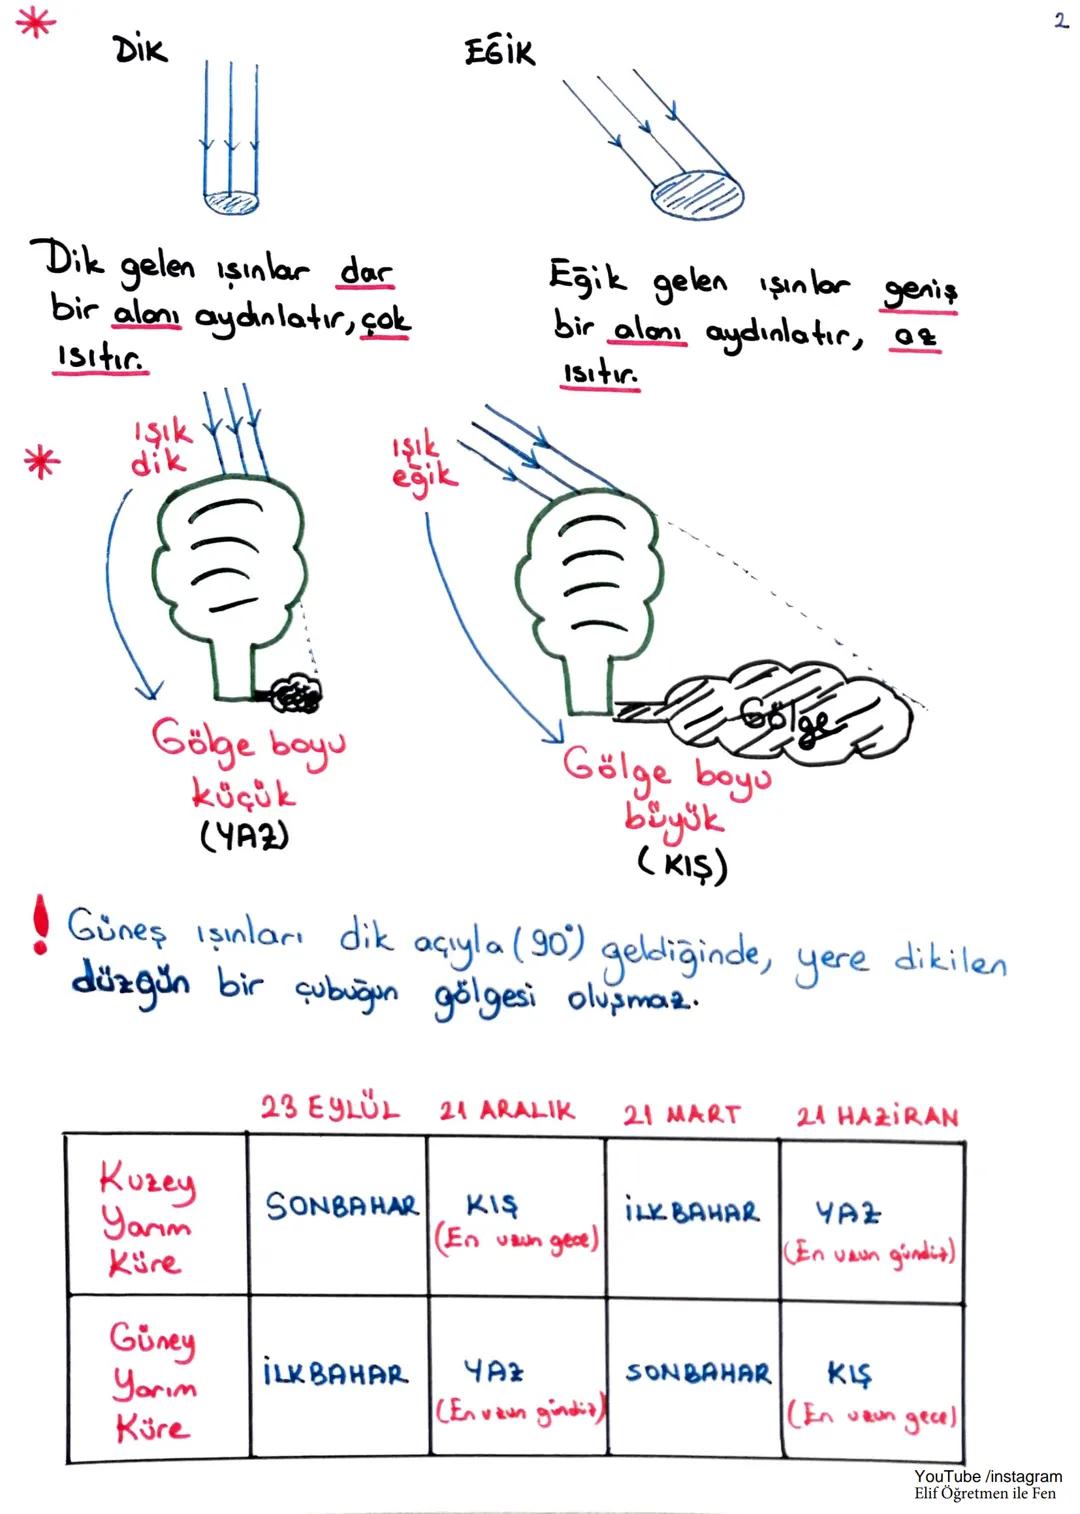 2
DİK
EĞİK
Dik gelen ışınlar dar
bir alanı aydınlatır, çok
ısıtır.
Eğik gelen ışınlar geniş
bir alanı aydınlatır, az
ısıtır.
ışık
dik
Gölge boyu
küçük
(YAZ)
ışık
eğik
Gölge
Gölge boyu
büyük
(KIŞ)
! Güneş ışınları dik açıyla (90°) geldiğinde, yere dikilen
düzgün bir çubuğun gölgesi oluşmaz.
23 EYLÜL 21 ARALIK 21 MART 21 HAZİRAN
Kuzey
Yarım
Küre
SONBAHAR
KIŞ
(En uzun gece)
İLKBAHAR
YAZ
(En uzun gündüz)
Güney
Yarım
Küre
İLKBAHAR
YAZ
(En uzun gündüz)
SONBAHAR
KIŞ
(En uzun gece)
YouTube /instagram
Elif Öğretmen ile Fen